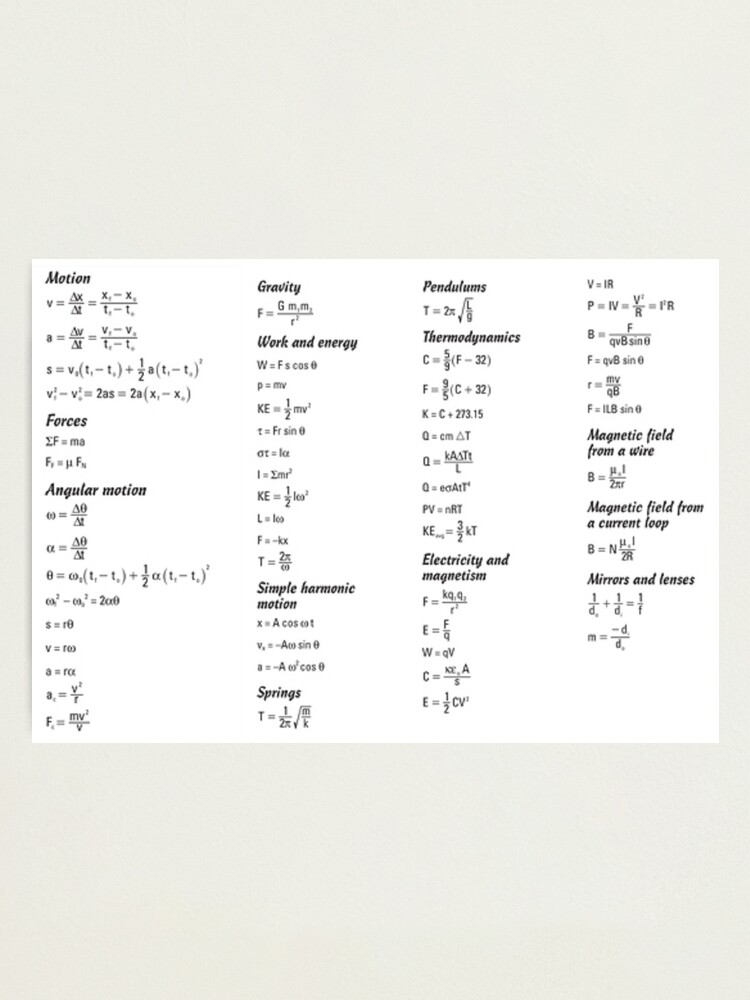 Motion
v = Δx/Δt = (x_f − x_o)/(t_f − t_o)
a = Δv/Δt = (v_f − v_o)/(t_f − t_o)
s = v_o(t_f − t_o) + 1/2 a(t_f − t_o)²
v_f² − v_o² = 2as = 2a(x_f − x_o)
Forces
ΣF = ma
F_F = μ F_N
Angular motion
ω = Δθ/Δt
α = Δθ/Δt
θ = ω_o(t_f − t_o) + 1/2 α(t_f − t_o)²
ω_f² − ω_o² = 2αθ
s = rθ
v = rω
a = rα
a_c = v²/r
F_c = mv²/v
Gravity
F = G m₁m₂/r²
Work and energy
W = F s cos θ
p = mv
KE = 1/2 mv²
τ = Fr sin θ
στ = Iα
I = Σmr²
KE = 1/2 Iω²
L = Iω
F = −kx
T = 2π/ω
Simple harmonic
motion
x = A cos ω t
v_x = −Aω sin θ
a = −A ω² cos θ
Springs
T = 1/2π √(m/k)
Pendulums
T = 2π √(L/g)
Thermodynamics
C = 5/9(F − 32)
F = 9/5(C + 32)
K = C + 273.15
Q = cm △T
Q = kAΔTt/L
Q = eσAtT⁴
PV = nRT
KE_avg = 3/2 kT
Electricity and
magnetism
F = kq₁q₂/r²
E = F/q
W = qV
C = κε_oA/s
E = 1/2 CV²
V = IR
P = IV = V²/R = I²R
B = F/(qvB sin θ)
F = qvB sin θ
r = mv/qB
F = ILB sin θ
Magnetic field
from a wire
B = μ_oI/2πr
Magnetic field from
a current loop
B = N μ_oI/2R
Mirrors and lenses
1/d_o + 1/d_i = 1/f
m = −d_i/d_o